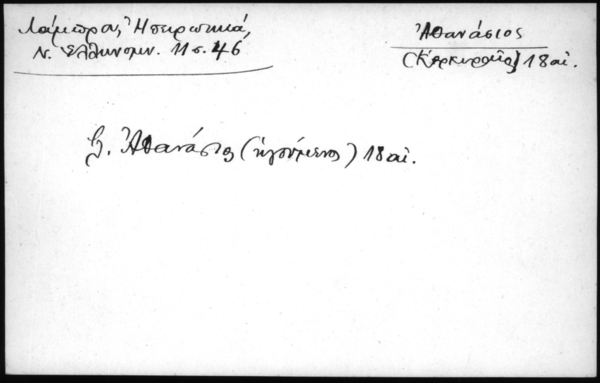 Λάμπρου, Ἠπειρωτικά,
Ν. Ἑλληνομν. 11 σ. 46
Ἀθανάσιος
(Κερκυραῖος) 18 αἰ.
Ἀθανάσιος (ἡγούμενος) 18 αἰ.